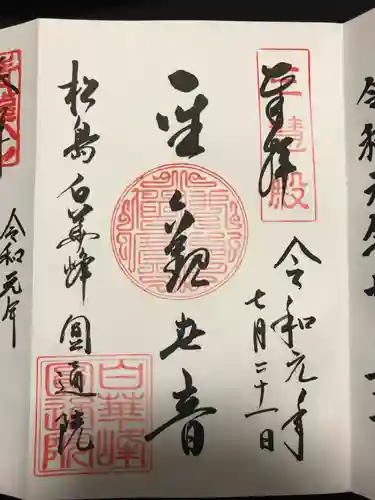 奉拝
三慧殿
令和元年
七月二十一日
聖観世音
松島白華峰圓通院
白華峰
圓通院
令和元年
令和元年七